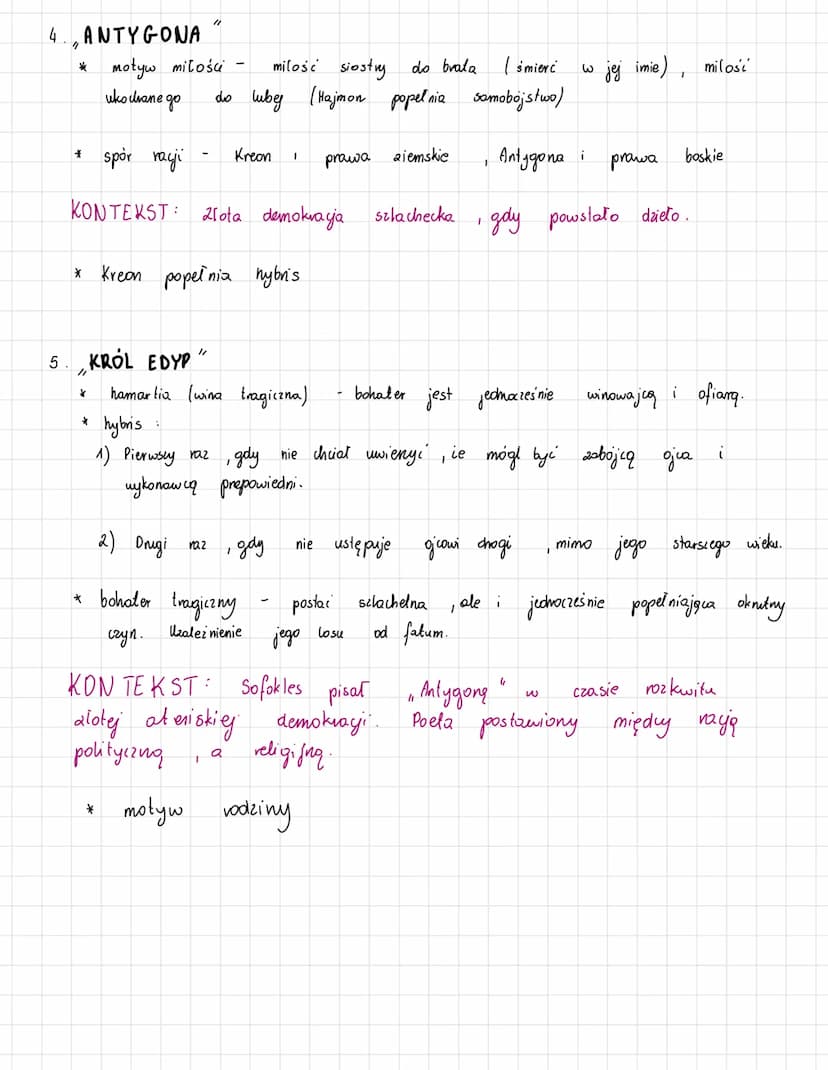 4. „ANTYGONA"
* motyw miłości - miłość siostry do brata (śmierć w jej imie), miłość
ukochanego do lubej (Hajmon popełnia samobójstwo)
* spór racji - Kreon i prawa ziemskie, Antygona i prawa boskie
KONTEKST: złota demokracja szlachecka, gdy powstało dzieło.
* Kreon popełnia hybris
5. „KRÓL EDYP"
* hamartia (wina tragiczna) - bohater jest jednocześnie winowajcą i ofiarą.
* hybris:
1) Pierwszy raz, gdy nie chciał uwierzyć, że mógł być zabójcą ojca i
wykonawcą przepowiedni.
2) Drugi raz, gdy nie ustępuje ojcowi drogi, mimo jego starszego wieku.
* bohater tragiczny - postać szlachetna, ale i jednocześnie popełniająca okrutny
czyn. Uzależnienie jego losu od fatum.
KONTEKST: Sofokles pisał „Antygonę" w czasie rozkwitu
złotej ateńskiej demokracji. Poeta postawiony między racją
polityczną, a religijną.
* motyw rodziny